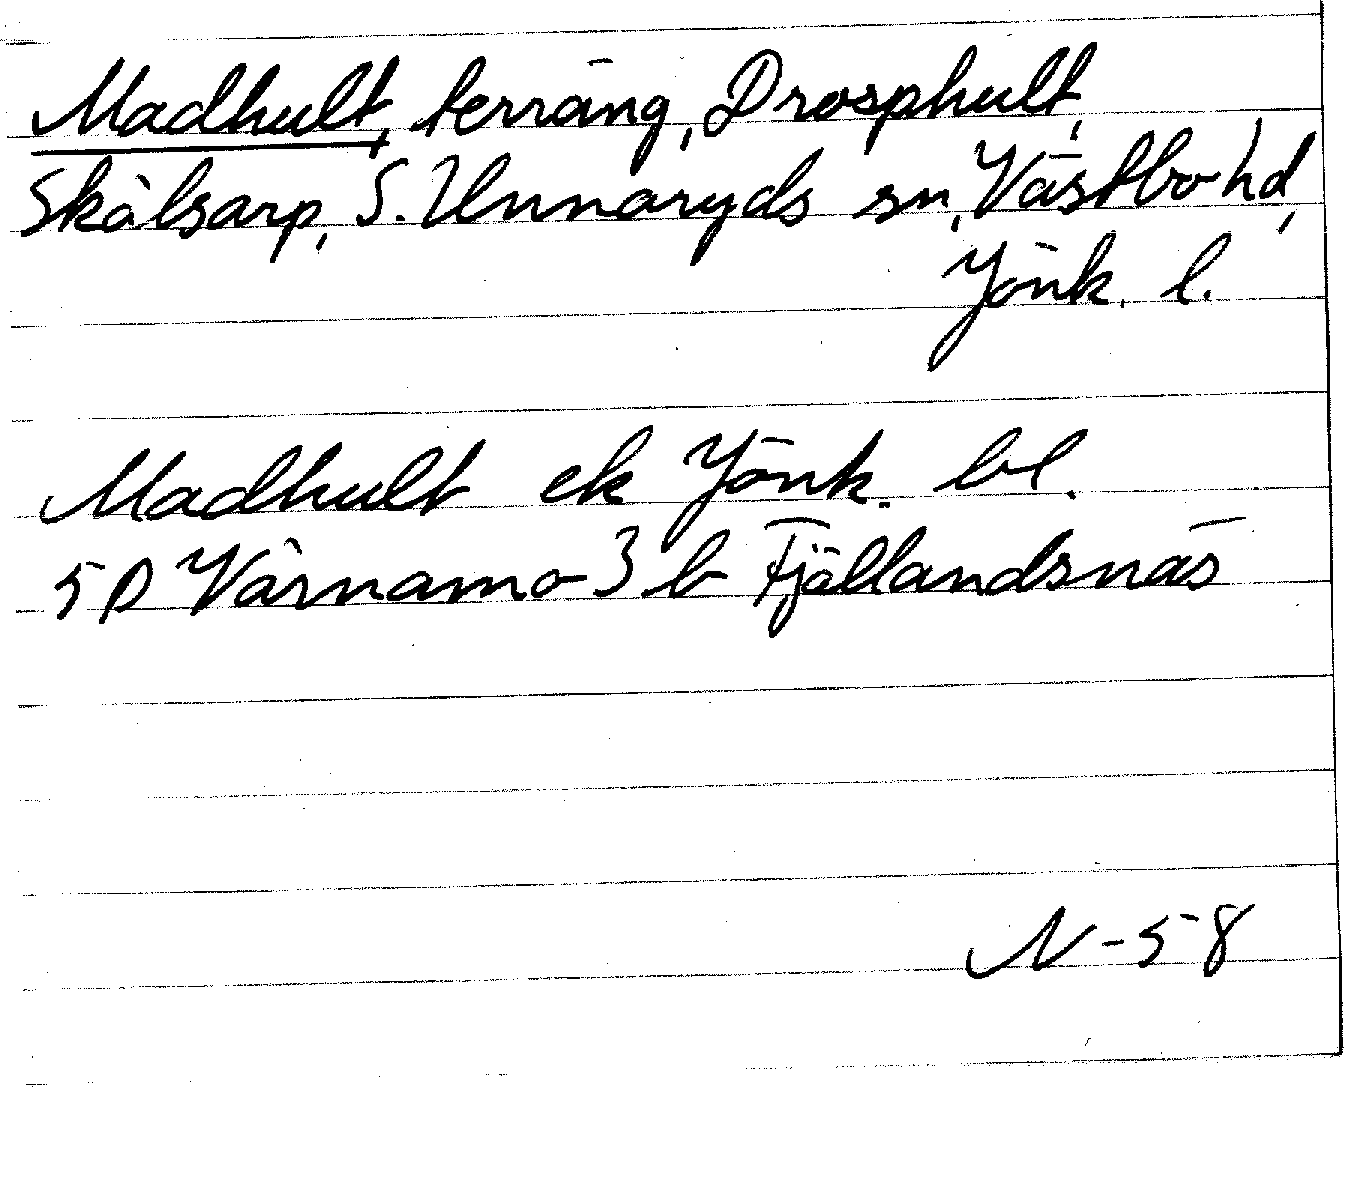 Madhult, terräng, Drosphult,
Skålsarp, S. Unnaryds sn, Västbo hd,
Jönk. l.
Madhult ek Jönk. bl.
5D Värnamo 3 b Fjällandsnäs
N-58